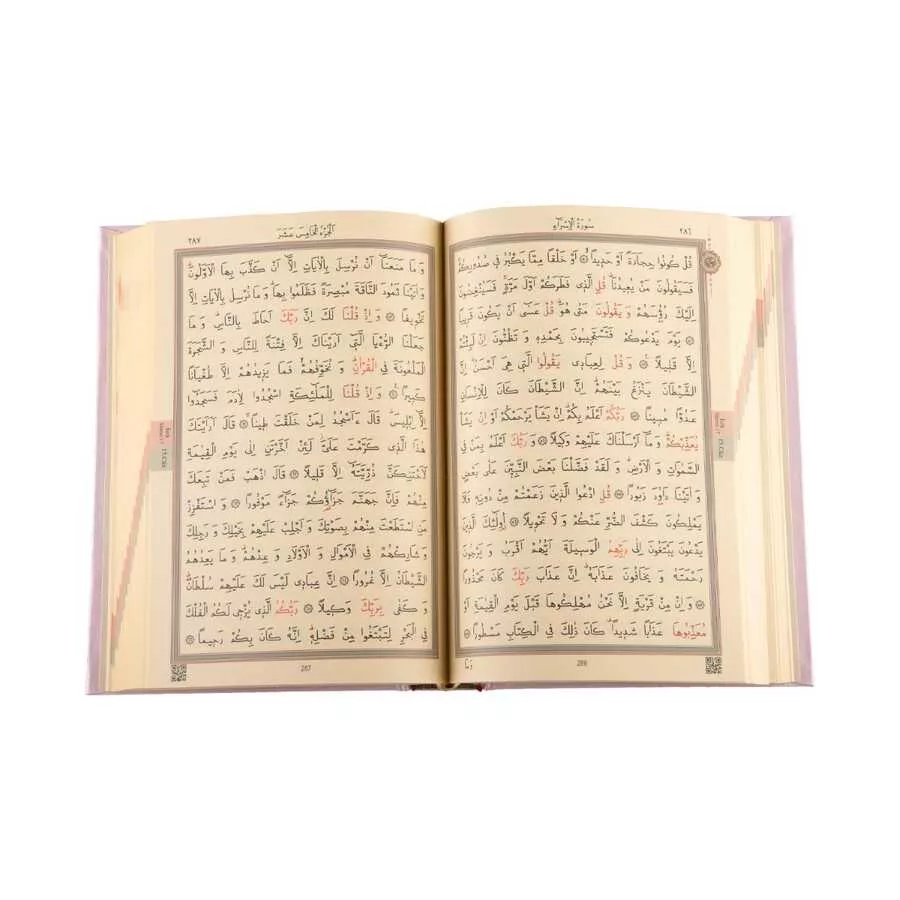 سُورَةُ الْاِسْرَاءِ
٢٨٦
قُلْ كُونُوا حِجَارَةً اَوْ حَدِيدًاۙ اَوْ خَلْقًا مِمَّا يَكْبُرُ فِي صُدُورِكُمْ
فَسَيَقُولُونَ مَنْ يُعِيدُنَاۜ قُلِ الَّذِي فَطَرَكُمْ اَوَّلَ مَرَّةٍۚ فَسَيُنْغِضُونَ
اِلَيْكَ رُؤُ۫سَهُمْ وَيَقُولُونَ مَتٰى هُوَۜ قُلْ عَسٰٓى اَنْ يَكُونَ قَرِيبًا
يَوْمَ يَدْعُوكُمْ فَتَسْتَجِيبُونَ بِحَمْدِهٖ وَتَظُنُّونَ اِنْ لَبِثْتُمْ
اِلَّا قَلِيلًا وَقُلْ لِعِبَادِي يَقُولُوا الَّتِي هِيَ اَحْسَنُۜ اِنَّ
الشَّيْطَانَ يَنْزَغُ بَيْنَهُمْۜ اِنَّ الشَّيْطَانَ كَانَ لِلْاِنْسَانِ
عَدُوًّا مُبِينًا رَبُّكُمْ اَعْلَمُ بِكُمْۜ اِنْ يَشَأْ يَرْحَمْكُمْ اَوْ اِنْ يَشَأْ
يُعَذِّبْكُمْۜ وَمَٓا اَرْسَلْنَاكَ عَلَيْهِمْ وَكِيلًا وَرَبُّكَ اَعْلَمُ بِمَنْ فِي
السَّمٰوَاتِ وَالْاَرْضِۜ وَلَقَدْ فَضَّلْنَا بَعْضَ النَّبِيّٖنَ عَلٰى بَعْضٍ
وَاٰتَيْنَا دَاوُ۫دَ زَبُورًا قُلِ ادْعُوا الَّذِينَ زَعَمْتُمْ مِنْ دُونِهٖ فَلَا
يَمْلِكُونَ كَشْفَ الضُّرِّ عَنْكُمْ وَلَا تَحْوِيلًا اُو۬لٰٓئِكَ الَّذِينَ
يَدْعُونَ يَبْتَغُونَ اِلٰى رَبِّهِمُ الْوَسِيلَةَ اَيُّهُمْ اَقْرَبُ وَيَرْجُونَ
رَحْمَتَهُ وَيَخَافُونَ عَذَابَهُۜ اِنَّ عَذَابَ رَبِّكَ كَانَ مَحْذُورًا
وَاِنْ مِنْ قَرْيَةٍ اِلَّا نَحْنُ مُهْلِكُوهَا قَبْلَ يَوْمِ الْقِيٰمَةِ اَوْ
مُعَذِّبُوهَا عَذَابًا شَدِيدًاۜ كَانَ ذٰلِكَ فِي الْكِتَابِ مَسْطُورًا
وَمَا
الْجُزْءُ الْخَامِسَ عَشَرَ
٢٨٧
وَمَا مَنَعَنَٓا اَنْ نُرْسِلَ بِالْاٰيَاتِ اِلَّٓا اَنْ كَذَّبَ بِهَا الْاَوَّلُونَۜ
وَاٰتَيْنَا ثَمُودَ النَّاقَةَ مُبْصِرَةً فَظَلَمُوا بِهَاۜ وَمَا نُرْسِلُ بِالْاٰيَاتِ اِلَّا
تَخْوِيفًا وَاِذْ قُلْنَا لَكَ اِنَّ رَبَّكَ اَحَاطَ بِالنَّاسِۜ وَمَا
جَعَلْنَا الرُّءْيَا الَّتِٓي اَرَيْنَاكَ اِلَّا فِتْنَةً لِلنَّاسِ وَالشَّجَرَةَ
الْمَلْعُونَةَ فِي الْقُرْاٰنِۜ وَنُخَوِّفُهُمْۙ فَمَا يَزِيدُهُمْ اِلَّا طُغْيَانًا
كَبِيرًا وَاِذْ قُلْنَا لِلْمَلٰٓئِكَةِ اسْجُدُوا لِاٰدَمَ فَسَجَدُٓوا
اِلَّٓا اِبْلِيسَۜ قَالَ ءَاَسْجُدُ لِمَنْ خَلَقْتَ طِينًا قَالَ اَرَاَيْتَكَ
هٰذَا الَّذِي كَرَّمْتَ عَلَيَّۘ لَئِنْ اَخَّرْتَنِ اِلٰى يَوْمِ الْقِيٰمَةِ
لَاَحْتَنِكَنَّ ذُرِّيَّتَهُٓ اِلَّا قَلِيلًا قَالَ اذْهَبْ فَمَنْ تَبِعَكَ
مِنْهُمْ فَاِنَّ جَهَنَّمَ جَزَٓاؤُ۬كُمْ جَزَٓاءً مَوْفُورًا وَاسْتَفْزِزْ
مَنِ اسْتَطَعْتَ مِنْهُمْ بِصَوْتِكَ وَاَجْلِبْ عَلَيْهِمْ بِخَيْلِكَ وَرَجِلِكَ
وَشَارِكْهُمْ فِي الْاَمْوَالِ وَالْاَوْلَادِ وَعِدْهُمْۜ وَمَا يَعِدُهُمُ
الشَّيْطَانُ اِلَّا غُرُورًا اِنَّ عِبَادِي لَيْسَ لَكَ عَلَيْهِمْ سُلْطَانٌۜ
وَكَفٰى بِرَبِّكَ وَكِيلًا رَبُّكُمُ الَّذِي يُزْجِي لَكُمُ الْفُلْكَ
فِي الْبَحْرِ لِتَبْتَغُوا مِنْ فَضْلِهٖۜ اِنَّهُ كَانَ بِكُمْ رَحِيمًا
287